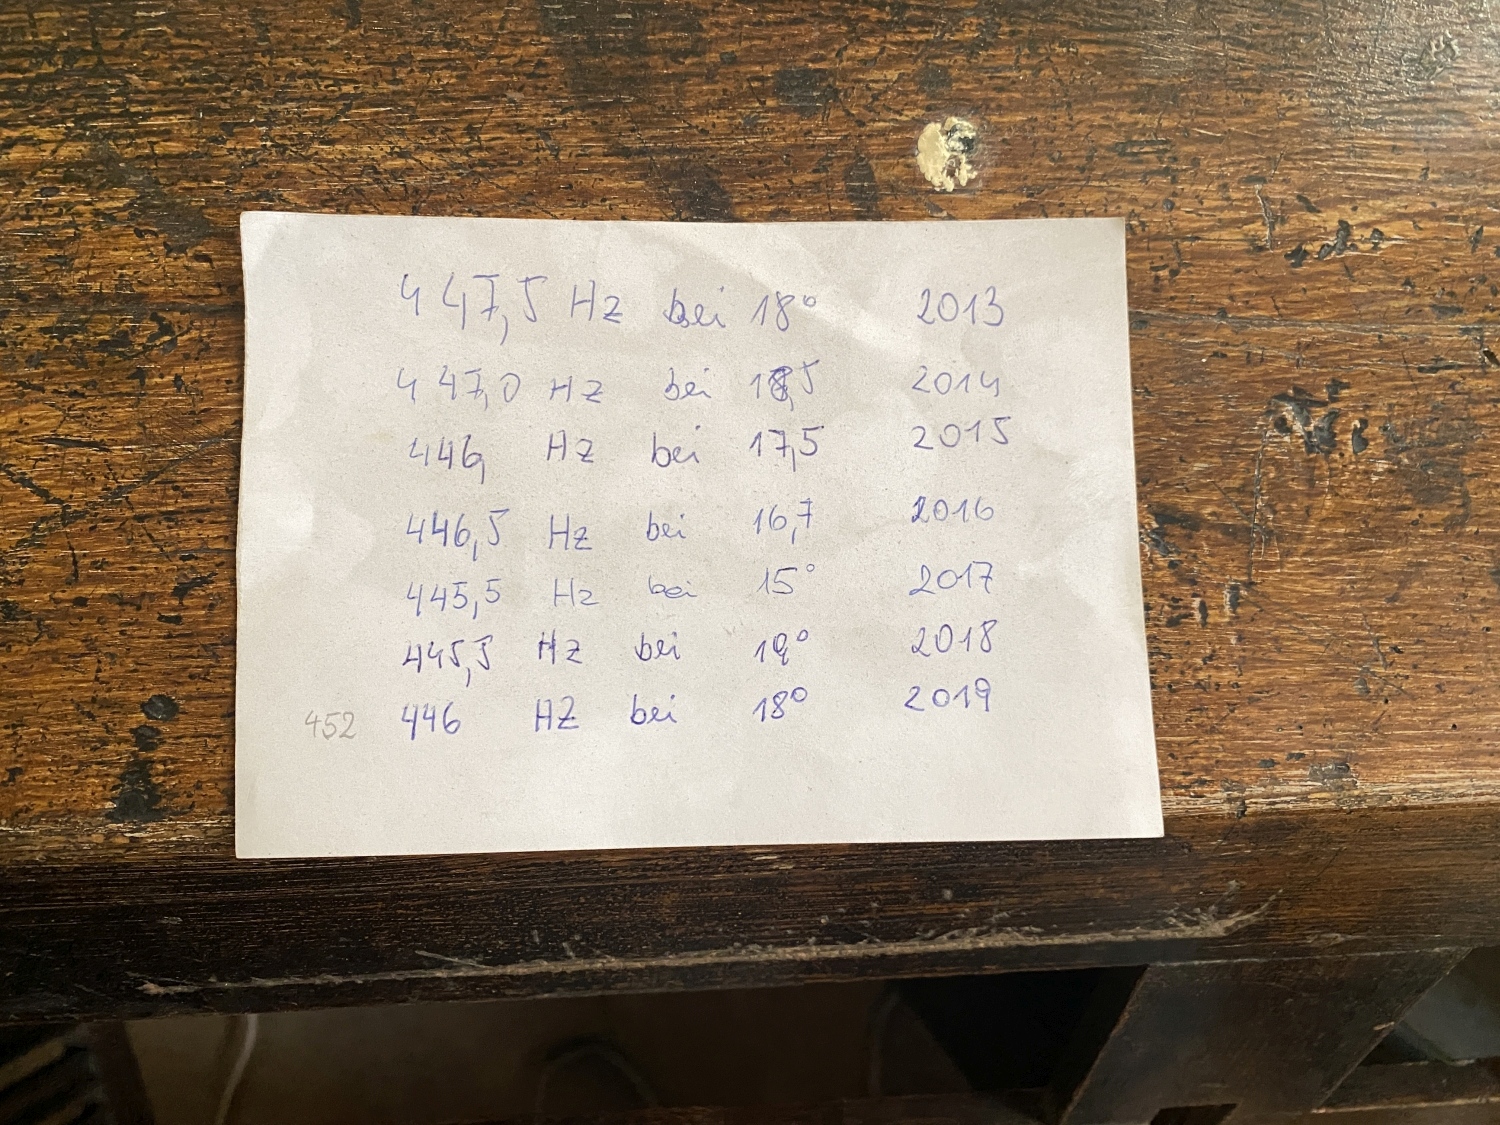 447,5 Hz bei 18° 2013
447,0 Hz bei 18,5 2014
446, Hz bei 17,5 2015
446,5 Hz bei 16,7 2016
445,5 Hz bei 15° 2017
445,5 Hz bei 19° 2018
452 446 HZ bei 18° 2019